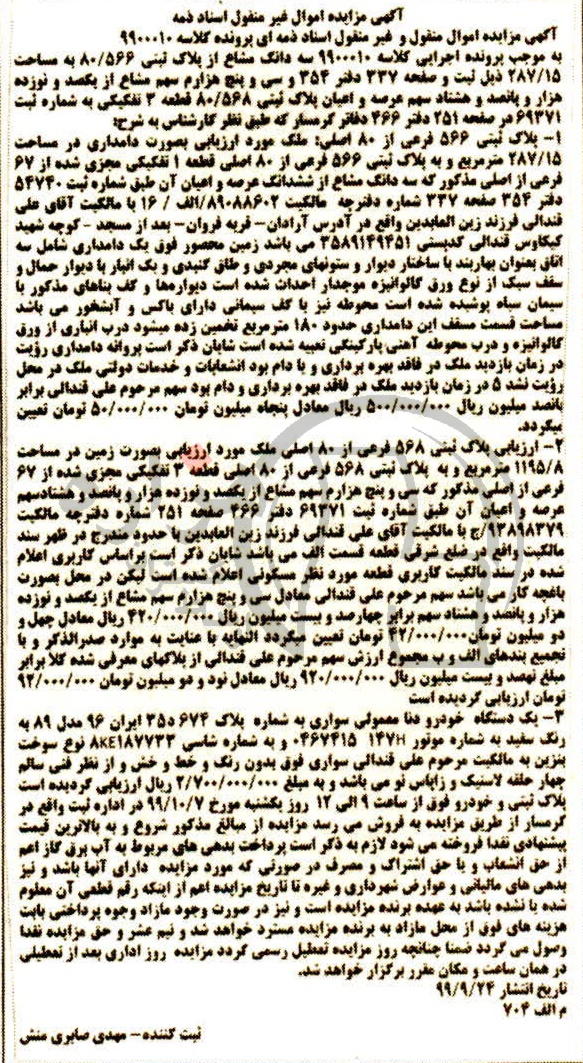 آگهی مزایده اموال غیر منقول اسناد ذمه
آگهی مزایده اموال منقول و غیر منقول اسناد ذمه ای پرونده کلاسه ۹۹۰۰۰۱۰
به موجب پرونده اجرایی کلاسه ۹۹۰۰۰۱۰ سه دانگ مشاع از پلاک ثبتی ۸۰/۵۶۶ به مساحت
۲۸۷/۱۵ ذیل ثبت و صفحه ۳۳۷ دفتر ۳۵۴ و سی و پنج هزارم سهم مشاع از یکصد و نوزده
هزار و پانصد و هشتاد سهم عرصه و اعیان پلاک ثبتی ۸۰/۵۶۸ قطعه ۳ تفکیکی به شماره ثبت
۶۹۳۷۱ در صفحه ۲۵۱ دفتر ۴۶۶ دفاتر گرمسار که طبق نظر کارشناس به شرح:
۱- پلاک ثبتی ۵۶۶ فرعی از ۸۰ اصلی: ملک مورد ارزیابی بصورت دامداری در مساحت
۲۸۷/۱۵ مترمربع و به پلاک ثبتی ۵۶۶ فرعی از ۸۰ اصلی قطعه ۱ تفکیکی مجزی شده از ۶۷
فرعی از اصلی مذکور که سه دانگ مشاع از ششدانگ عرصه و اعیان آن طبق شماره ثبت ۵۴۷۴۰
دفتر ۳۵۴ صفحه ۳۳۷ شماره دفترچه مالکیت ۸۹۰۸۸۶۰۲/الف / ۱۶ با مالکیت آقای علی
قندالی فرزند زین العابدین واقع در آدرس آرادان- قریه فروان- بعد از مسجد -کوچه شهید
کیکاوس قندالی کدپستی ۳۵۸۹۱۴۹۴۵۱ می باشد زمین محصور فوق یک دامداری شامل سه
اتاق بعنوان بهاربند با ساختار دیوار و ستونهای مجردی و طاق گنبدی و یک انبار با دیوار حمال و
سقف سبک از نوع ورق گالوانیزه موجدار احداث شده است دیوارها و کف بناهای مذکور با
سیمان سیاه پوشیده شده است محوطه نیز با کف سیمانی دارای باکس و آبشخور می باشد
مساحت قسمت مسقف این دامداری حدود ۱۸۰ مترمربع تخمین زده میشود درب انباری از ورق
گالوانیزه و درب محوطه آهنی پارکینگی تعبیه شده است شایان ذکر است پروانه دامداری رؤیت
در زمان بازدید ملک در فاقد بهره برداری و یا دام بود انشعابات و خدمات دولتی ملک در محل
رؤیت نشد ۵ در زمان بازدید ملک در فاقد بهره برداری و دام بود سهم مرحوم علی قندالی برابر
پانصد میلیون ریال ۵۰۰/۰۰۰/۰۰۰ ریال معادل پنجاه میلیون تومان ۵۰/۰۰۰/۰۰۰ تومان تعیین
میگردد.
۲- ارزیابی پلاک ثبتی ۵۶۸ فرعی از ۸۰ اصلی ملک مورد ارزیابی بصورت زمین در مساحت
۱۱۹۵/۸ مترمربع و به پلاک ثبتی ۵۶۸ فرعی از ۸۰ اصلی قطعه ۳ تفکیکی مجزی شده از ۶۷
فرعی از اصلی مذکور که سی و پنج هزارم سهم مشاع از یکصد و نوزده هزار و پانصد و هشتادسهم
عرصه و اعیان آن طبق شماره ثبت ۶۹۳۷۱ دفتر ۴۶۶ صفحه ۲۵۱ شماره دفترچه مالکیت
۹۳۸۹۸۳۷۹/ج با مالکیت آقای علی قندالی فرزند زین العابدین با حدود مندرج در ظهر سند
مالکیت واقع در ضلع شرقی قطعه قسمت الف می باشد شایان ذکر است براساس کاربری اعلام
شده در سند مالکیت کاربری قطعه مورد نظر مسکونی اعلام شده است لیکن در محل بصورت
باغچه کار می باشد سهم مرحوم علی قندالی معادل سی و پنج هزارم سهم مشاع از یکصد و نوزده
هزار و پانصد و هشتاد سهم برابر چهارصد و بیست میلیون ریال ۴۲۰/۰۰۰/۰۰۰ ریال معادل چهل و
دو میلیون تومان ۴۲/۰۰۰/۰۰۰ تومان تعیین میگردد النهایه با عنایت به موارد صدرالذکر و با
تجمیع بندهای الف و ب مجموع ارزش سهم مرحوم علی قندالی از پلاکهای معرفی شده کلاً برابر
مبلغ نهصد و بیست میلیون ریال ۹۲۰/۰۰۰/۰۰۰ ریال معادل نود و دو میلیون تومان ۹۲/۰۰۰/۰۰۰
تومان ارزیابی گردیده است
۳- یک دستگاه خودرو دنا معمولی سواری به شماره پلاک ۶۷۴ د۳۵ ایران ۹۶ مدل ۸۹ به
رنگ سفید به شماره موتور ۱۴۷H ۰۴۶۷۴۱۵ و به شماره شاسی ۸KE۱۸۷۷۳۳ نوع سوخت
بنزین به مالکیت مرحوم علی قندالی سواری فوق بدون رنگ و خط و خش و از نظر فنی سالم
چهار حلقه لاستیک و زاپاس نو می باشد و به مبلغ ۲/۷۰۰/۰۰۰/۰۰۰ ریال ارزیابی گردیده است
پلاک ثبتی و خودرو فوق از ساعت ۹ الی ۱۲ روز یکشنبه مورخ ۹۹/۱۰/۷ در اداره ثبت واقع در
گرمسار از طریق مزایده به فروش می رسد مزایده از مبالغ مذکور شروع و به بالاترین قیمت
پیشنهادی نقدا فروخته می شود لازم به ذکر است پرداخت بدهی های مربوط به آب برق گاز اعم
از حق انشعاب و یا حق اشتراک و مصرف در صورتی که مورد مزایده دارای آنها باشد و نیز
بدهی های مالیاتی و عوارض شهرداری و غیره تا تاریخ مزایده اعم از اینکه رقم قطعی آن معلوم
شده یا نشده باشد به عهده برنده مزایده است و نیز در صورت وجود مازاد وجوه پرداختی بابت
هزینه های فوق از محل مازاد به برنده مزایده مسترد خواهد شد و نیم عشر و حق مزایده نقدا
وصول می گردد ضمنا چنانچه روز مزایده تعطیل رسمی گردد مزایده روز اداری بعد از تعطیلی
در همان ساعت و مکان مقرر برگزار خواهد شد.
تاریخ انتشار ۹۹/۹/۲۴
م الف ۷۰۴
ثبت کننده- مهدی صابری منش